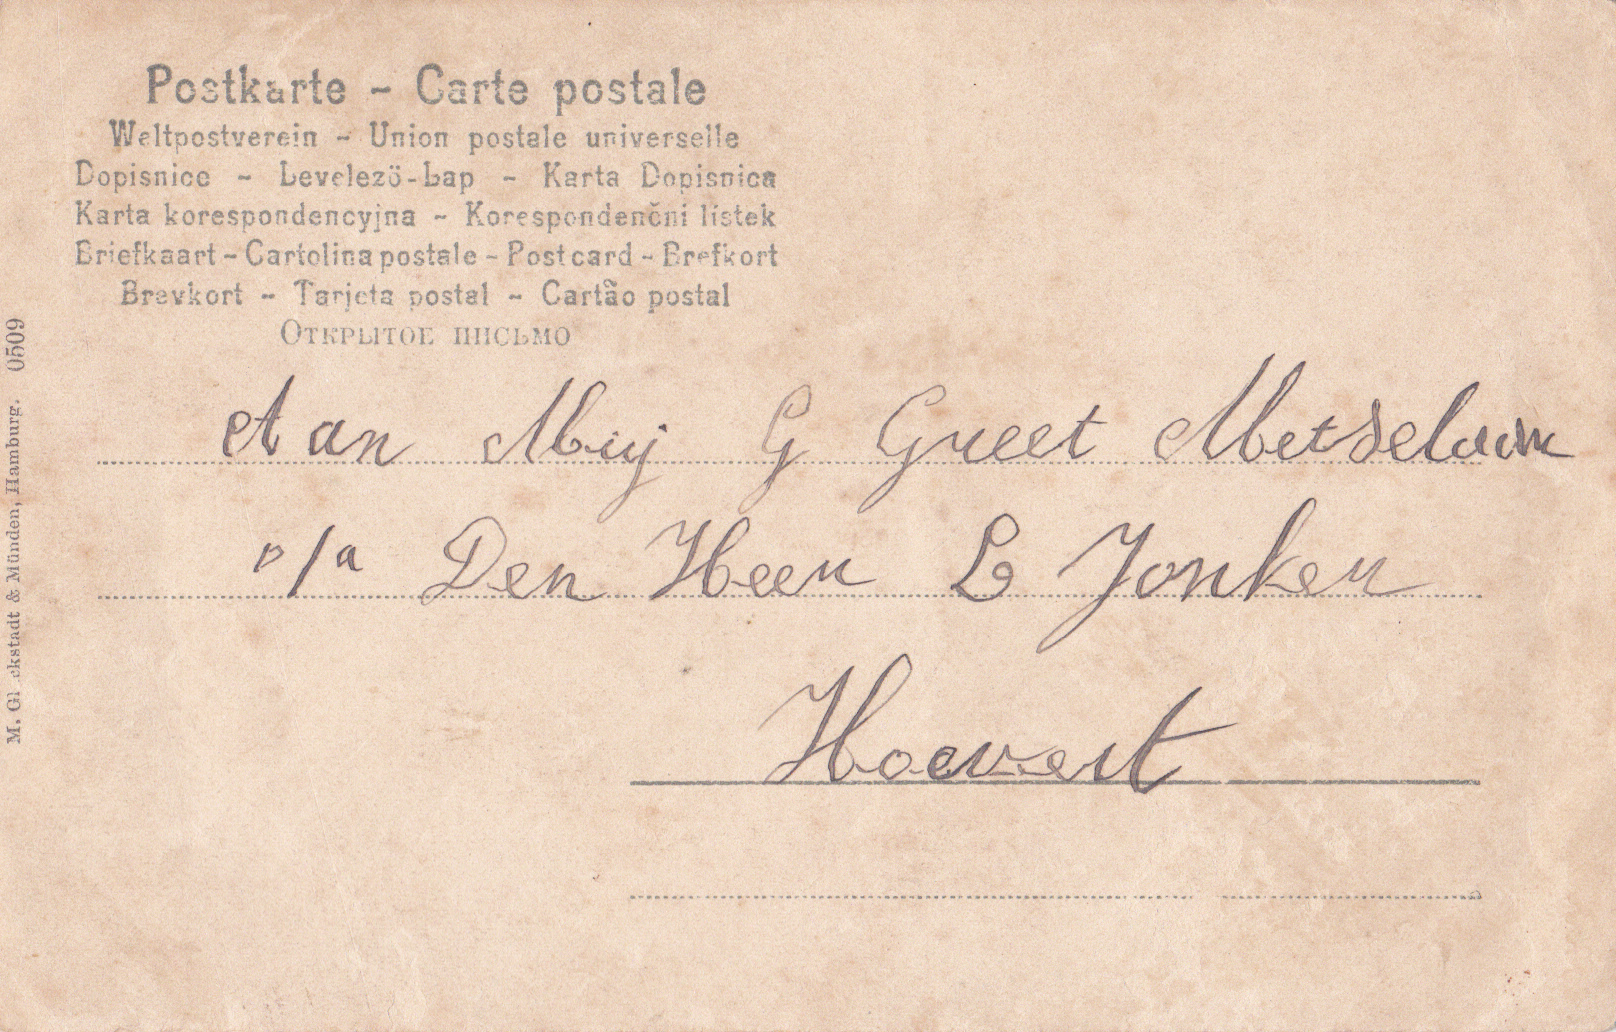 Postkarte - Carte postale
Weltpostverein - Union postale universelle
Dopisnice - Levelező-Lap - Karta Dopisnica
Karta korespondencyjna - Korespondenční lístek
Briefkaart - Cartolina postale - Post card - Brefkort
Brevkort - Tarjeta postal - Cartão postal
Открытое письмо
Aan Mej G Greet Metselaar
p/a Den Heer L Jonker
Hoevert
M. Glückstadt & Münden, Hamburg. 0509